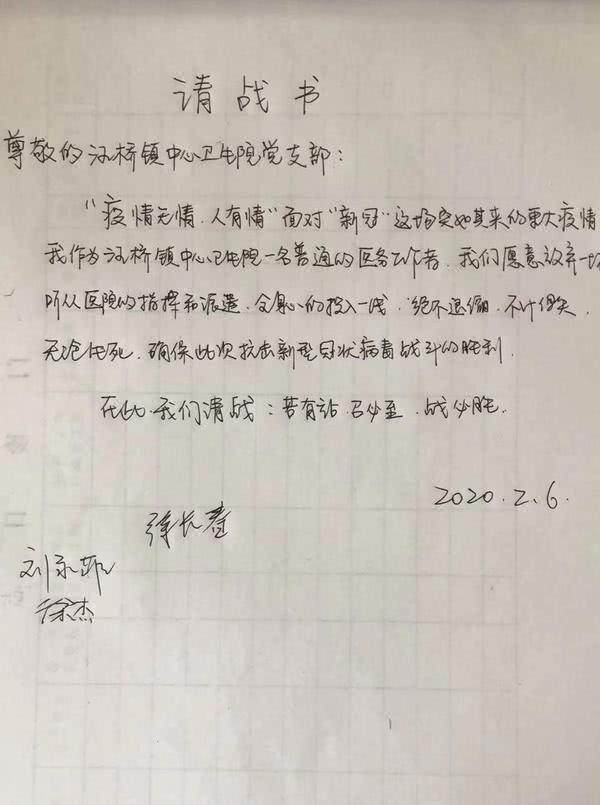 请战书
尊敬的汤桥镇中心卫生院党支部：
"疫情无情，人有情"面对"新冠"这场突如其来的重大疫情
我作为汤桥镇中心卫生院一名普通的医务工作者，我们愿意放弃一切
听从医院的指挥和派遣，全身心的投入一线，绝不退缩，不计得失，
无论生死，确保此次抗击新型冠状病毒战斗的胜利．
在此，我们请战：若有战，召必至，战必胜．
2020.2.6.
徐长春
刘永
徐杰